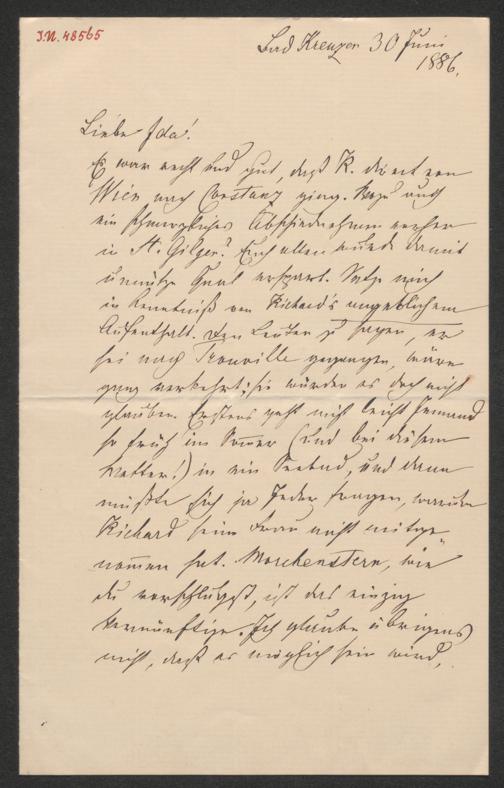 J.N. 48565
Bad Kreuzen 30 Juni
1886.
Liebe Ida!
Es war recht und gut, daß R. direct von
Wien nach Constanz ging. Wozu auch
ein schmerzliches Abschiednehmen vorher
in St. Gilgen? Euch allen wurde damit
unnütze Qual erspart. Setze mich
in Kenntniß von Richard's angeblichem
Aufenthalt. Den Leuten zu sagen, er
sei nach Trouville gegangen, wäre
ganz verkehrt; sie würden es doch nicht
glauben. Erstens geht nicht leicht Jemand
so früh im Somer (und bei diesem
Wetter!) in ein Seebad, und dann
müßte sich ja Jeder fragen, warum
Richard seine Frau nicht mitge-
nomen hat. Morchenstern, wie
du vorschlugst, ist das einzig
Vernünftige. Ich glaube übrigens
nicht, daß es möglich sein wird,